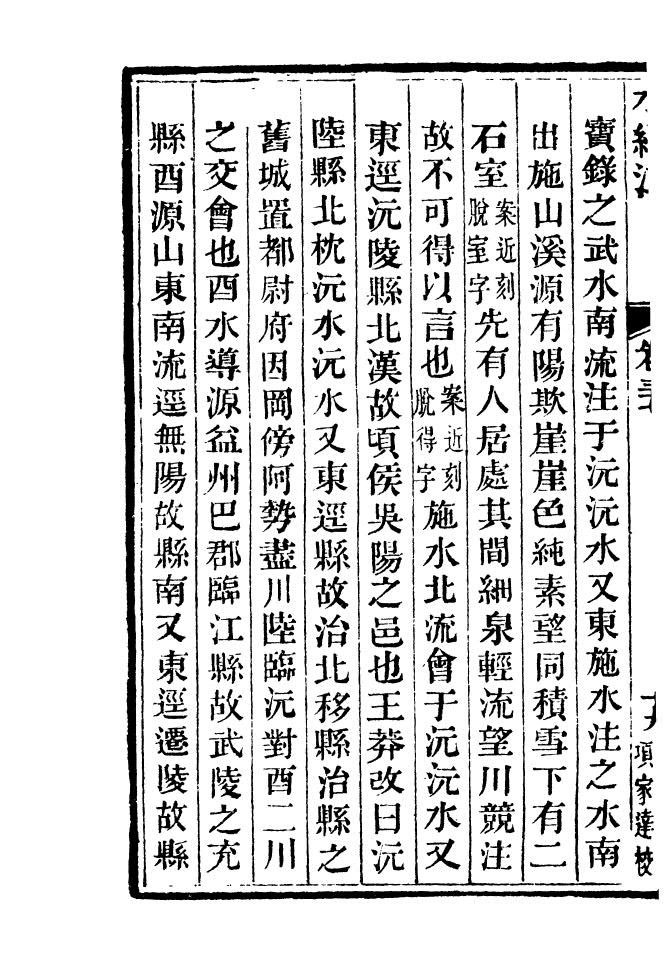 水經注 卷三七 十九 項家達校
寶錄之武水南流注于沅沅水又東施水注之水南
出施山溪源有陽欺崖崖色純素望同積雪下有二
石室案近刻脫室字先有人居處其間細泉輕流望川競注
故不可得以言也案近刻脫得字施水北流會于沅沅水又
東逕沅陵縣北漢故頃侯吳陽之邑也王莽改曰沅
陸縣北枕沅水沅水又東逕縣故治北移縣治縣之
舊城置都尉府因岡傍阿勢盡川陸臨沅對酉二川
之交會也酉水導源益州巴郡臨江縣故武陵之充
縣酉源山東南流逕無陽故縣南又東逕遷陵故縣